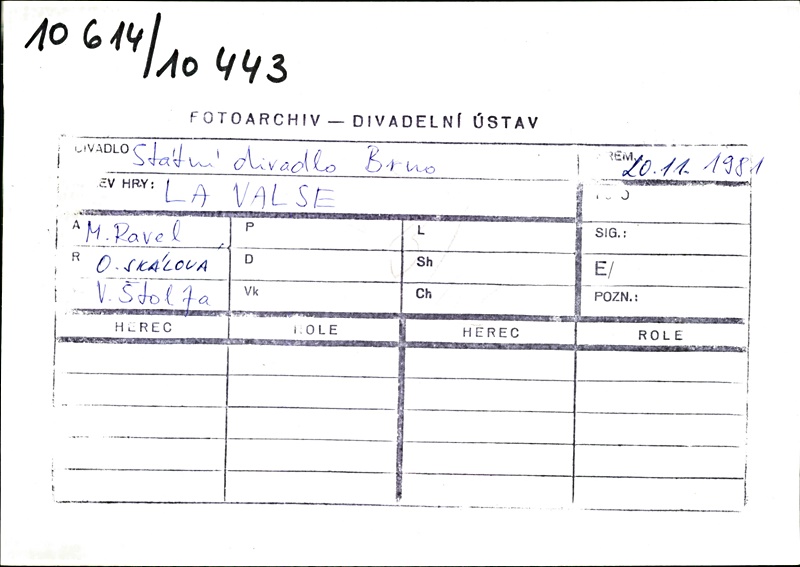 10 614/10 443
FOTOARCHIV — DIVADELNÍ ÚSTAV
DIVADLO Státní divadlo Brno
PREM. 20.11.1981
EV HRY: LA VALSE
A M. Ravel P L SIG.:
R O. SKÁLOVÁ D Sh E/
V. Vk Ch POZN.:
HEREC ROLE HEREC ROLE